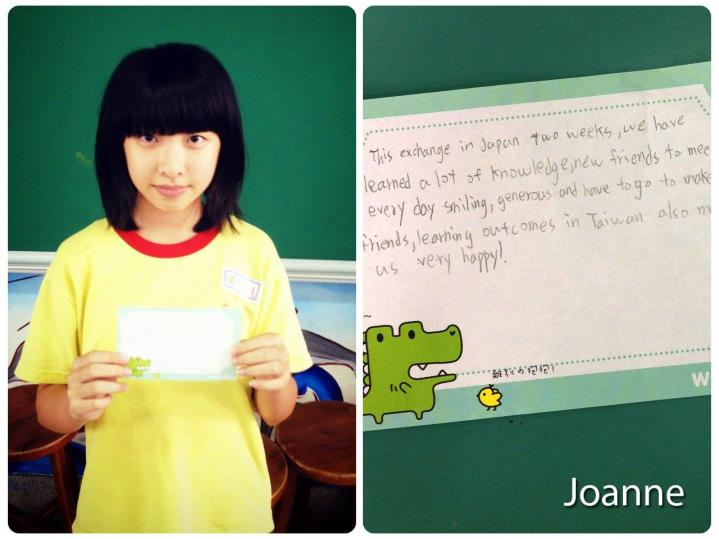 This exchange in Japan two weeks, we have
learned a lot of knowledge, new friends to mee
every day smiling, generous and have to go to make
friends, learning outcomes in Taiwan also m
us very happy!
離別の抱抱!
W
Joanne